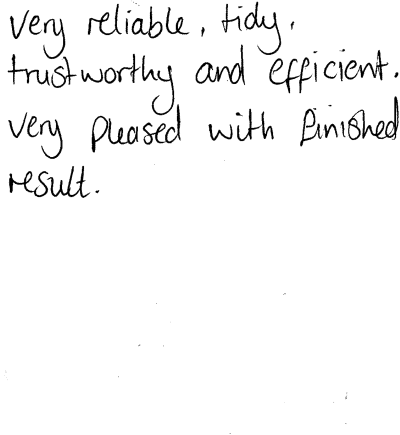 Very reliable, tidy,
trustworthy and efficient.
Very pleased with finished
result.